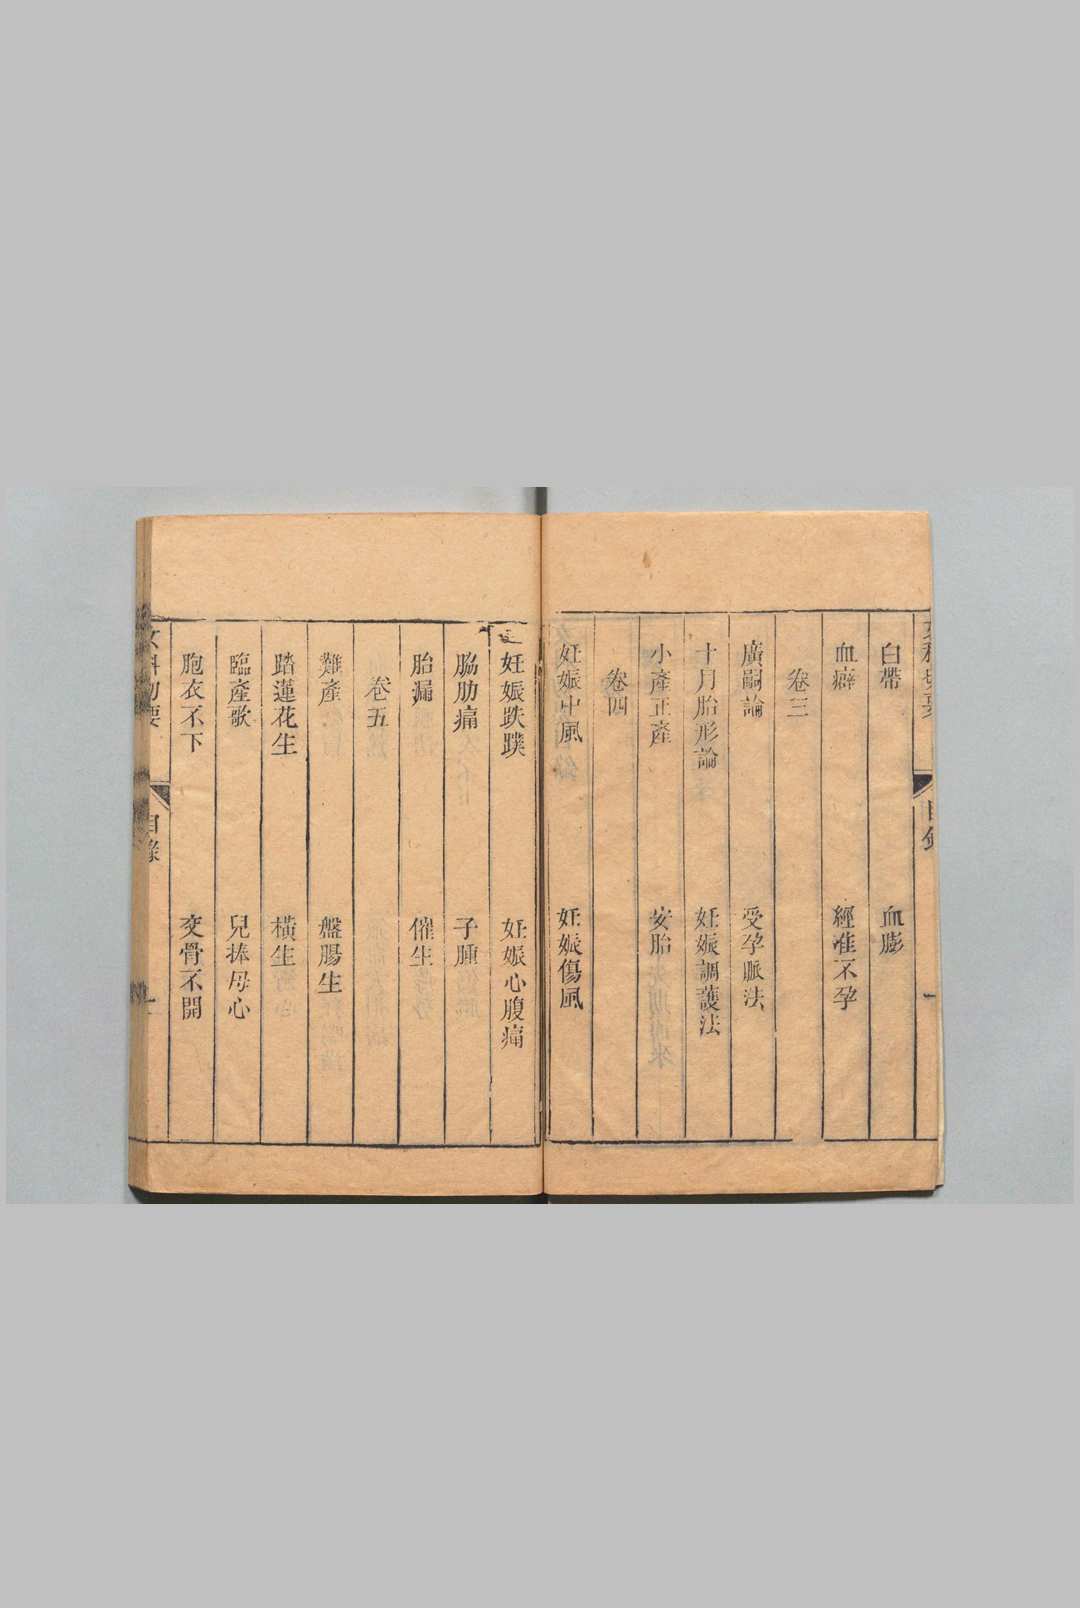 白帶　血膨
血癖　經准不孕
卷三
廣嗣論　受孕脈法
十月胎形論　妊娠調護法
小產正產　安胎
卷四
妊娠中風　妊娠傷風
妊娠跌蹼　妊娠心腹痛
脇肋痛　子腫
胎漏　催生
卷五
難產　盤腸生
踏蓮花生　橫生
臨產歌　兒捧母心
胞衣不下　交骨不開
女科切要　目錄